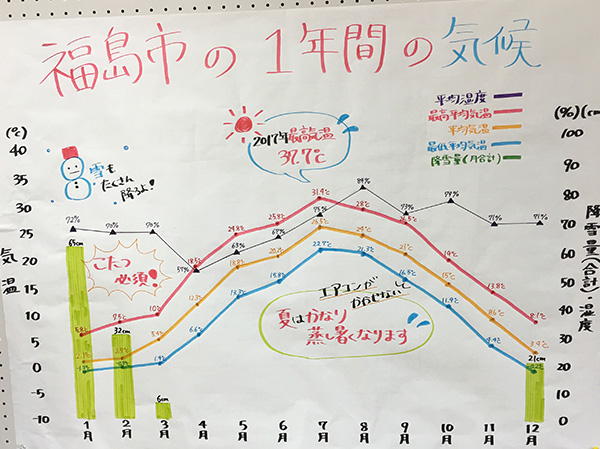 福島市の1年間の気候
平均湿度
最高平均気温
平均気温
最低平均気温
降雪量(月合計)
(℃)
(%)(cm
2017年最高気温
37.7℃
雪も
たくさん
降るよ!
こたつ
必須!
エアコンが
かかせない
夏はかなり
蒸し暑くなります
気温
降雪量(合計)・湿度
40
35
30
25
20
15
10
5
0
-5
-10
100
90
80
70
60
50
40
30
20
10
0
72% 70% 70% 57% 63% 67% 75% 84% 73% 79% 71% 71%
5.8℃ 10℃ 18.5℃ 24.8℃ 25.8℃ 31.4℃ 28℃ 26.5℃ 19℃ 13.8℃ 8.1℃
5.4℃ 12.3℃ 18.8℃ 26.5℃ 24℃ 21℃ 15℃ 8.6℃ 3.4℃
1.9℃ 6.6℃ 13.3℃ 15.8℃ 22.7℃ 21.3℃ 16.5℃ 11.9℃
65cm
32cm
6cm
21cm
1月 2月 3月 4月 5月 6月 7月 8月 9月 10月 11月 12月